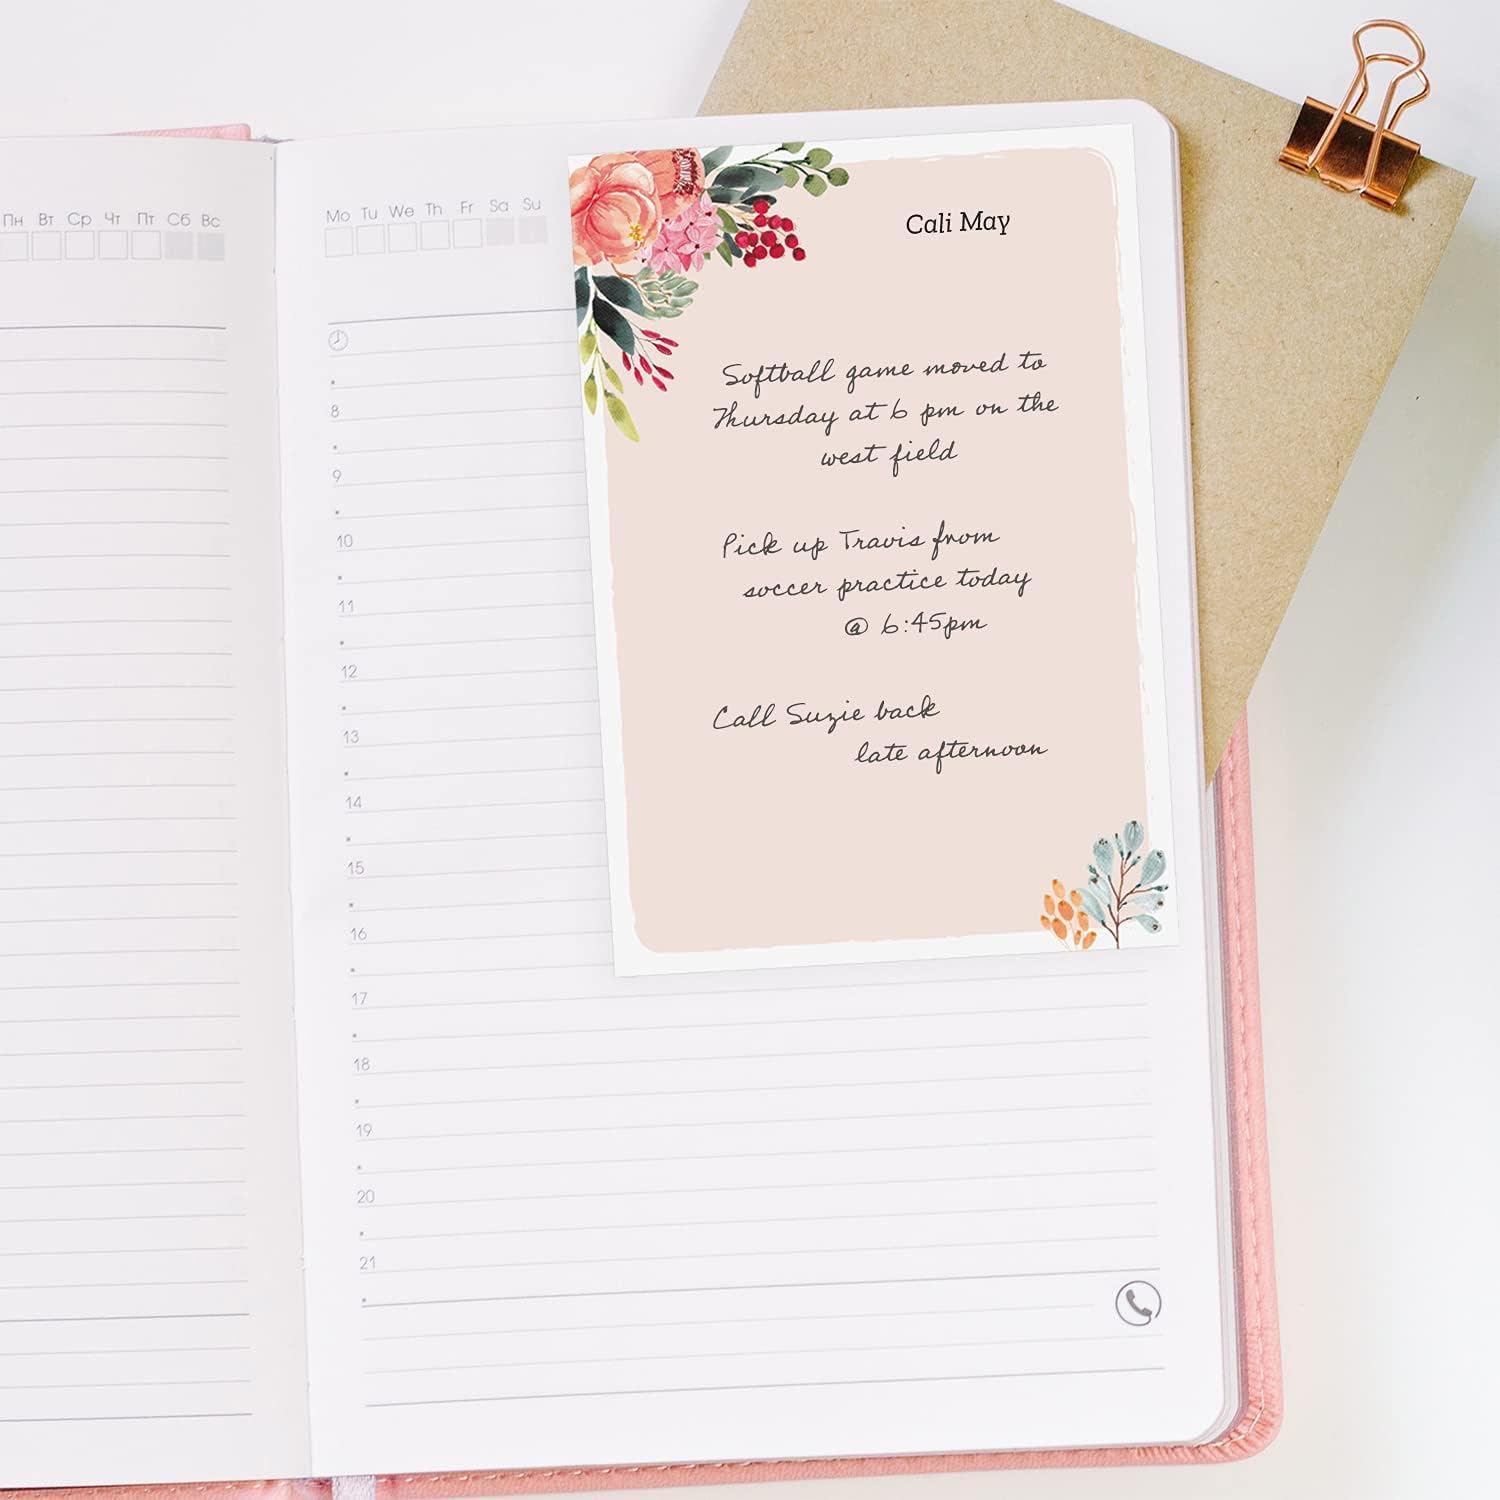 Пн Вт Ср Чт Пт Сб Вс
Mo Tu We Th Fr Sa Su
8
9
10
11
12
13
14
15
16
17
18
19
20
21
Cali May
Softball game moved to
Thursday at 6 pm on the
west field
Pick up Travis from
soccer practice today
@ 6:45pm
Call Suzie back
late afternoon